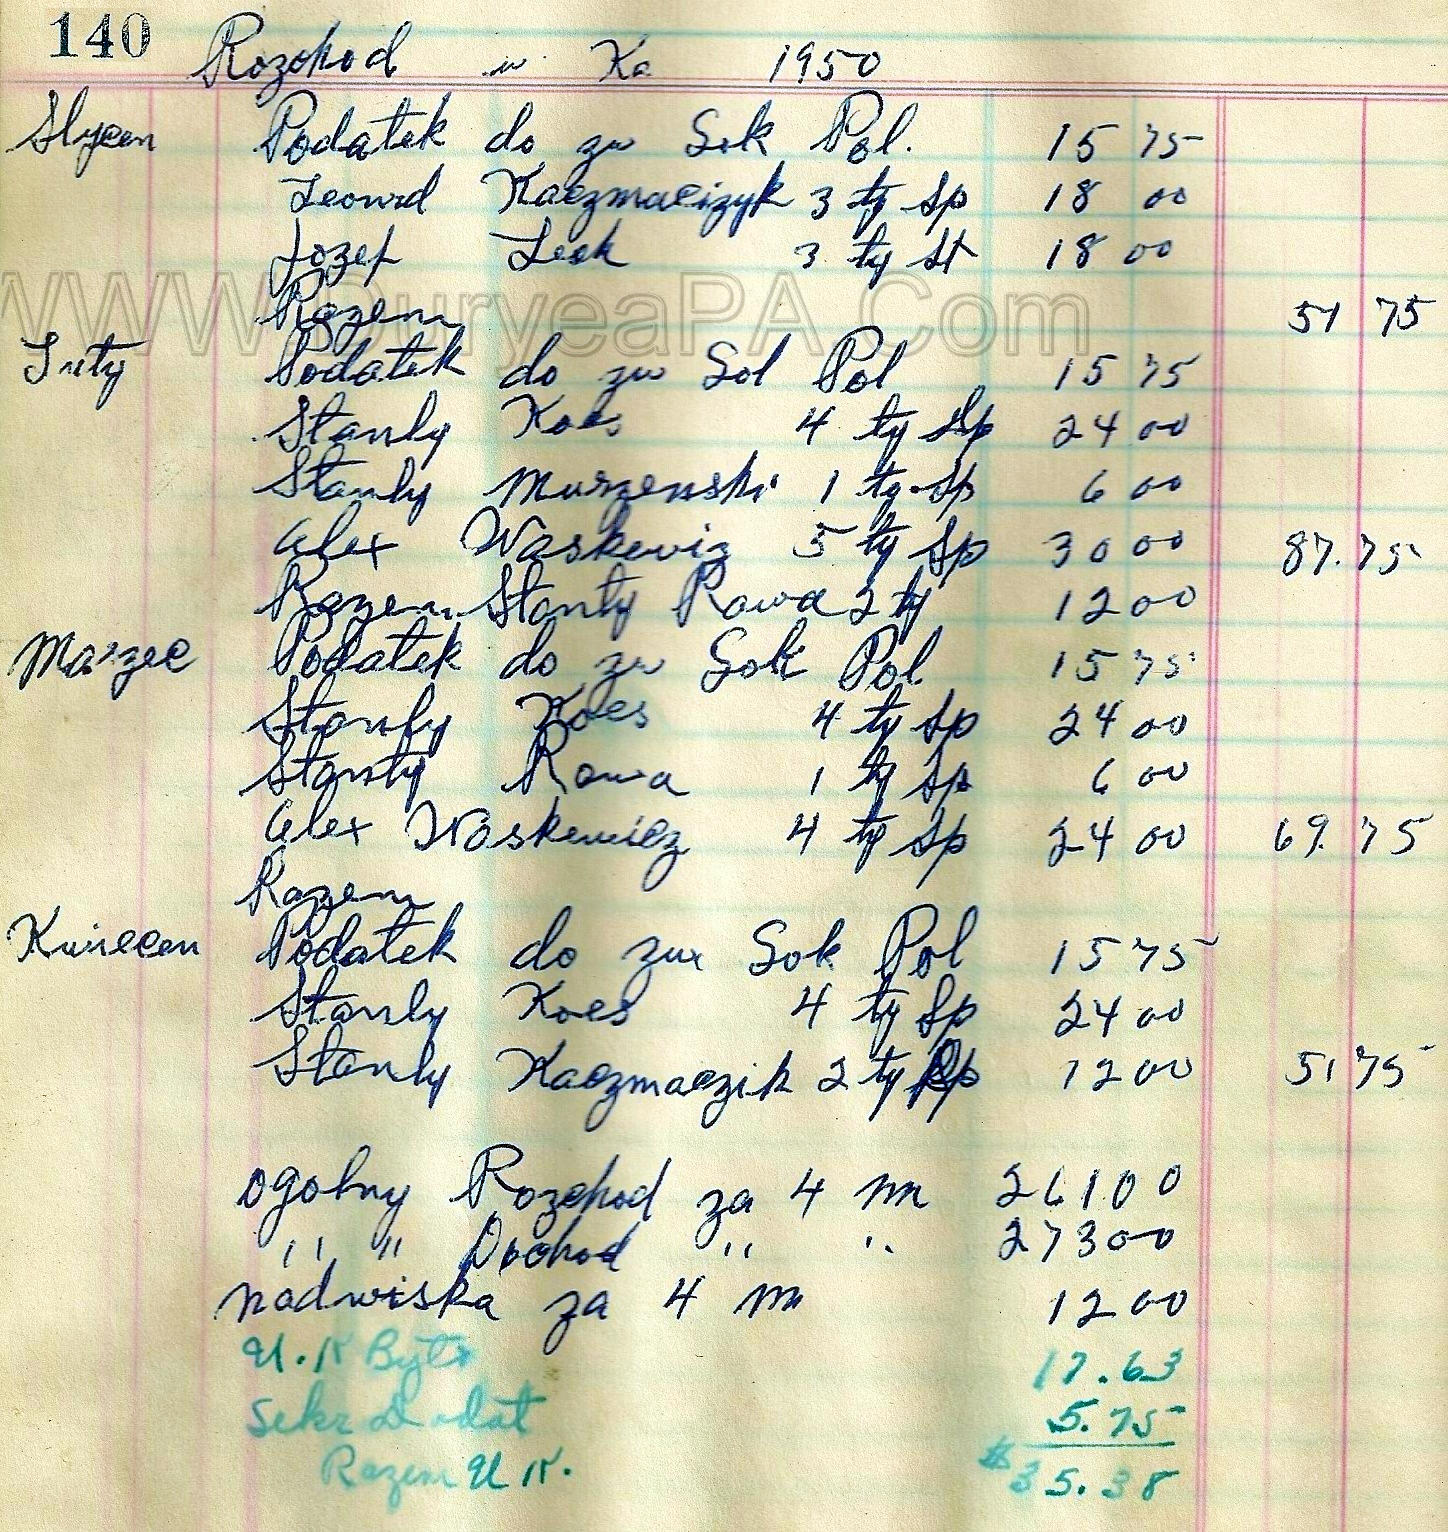 140 Rozohod w Ka 1950
Slycen Podatek do zw Sok Pol. 15 75
Leonrd Kaczmaeizyk 3 ty Sp 18 00
Jozef Leok 3 ty St 18 00
Razem 51 75
WWW.DuryeaPA.Com
Luty Podatek do zw Sol Pol 15 75
Stanly Koes 4 ty Sp 24 00
Stanly Murzenski 1 ty Sp 6 00
Alex Waskewiz 5 ty Sp 30 00 87.75
Razem Stanly Rawa 2 ty 12 00
Marzec Podatek do zw Sok Pol. 15 75
Stanly Koes 4 ty Sp 24 00
Stanly Rawa 1 ty Sp 6 00
Alex Waskewicz 4 ty Sp 24 00 69.75
Razem
Kwiecen Podatek do zw Sok Pol 15 75
Stanly Koes 4 ty Sp 24 00
Stanly Kaczmaczik 2 ty Sp 12 00 51 75
ogolny Rozchod za 4 m 261 00
" " Dochod " " 273 00
nadwiska za 4 m 12 00
U. K Byto 17.63
Sekr Dodat 5.75
Razem U K. $35.38